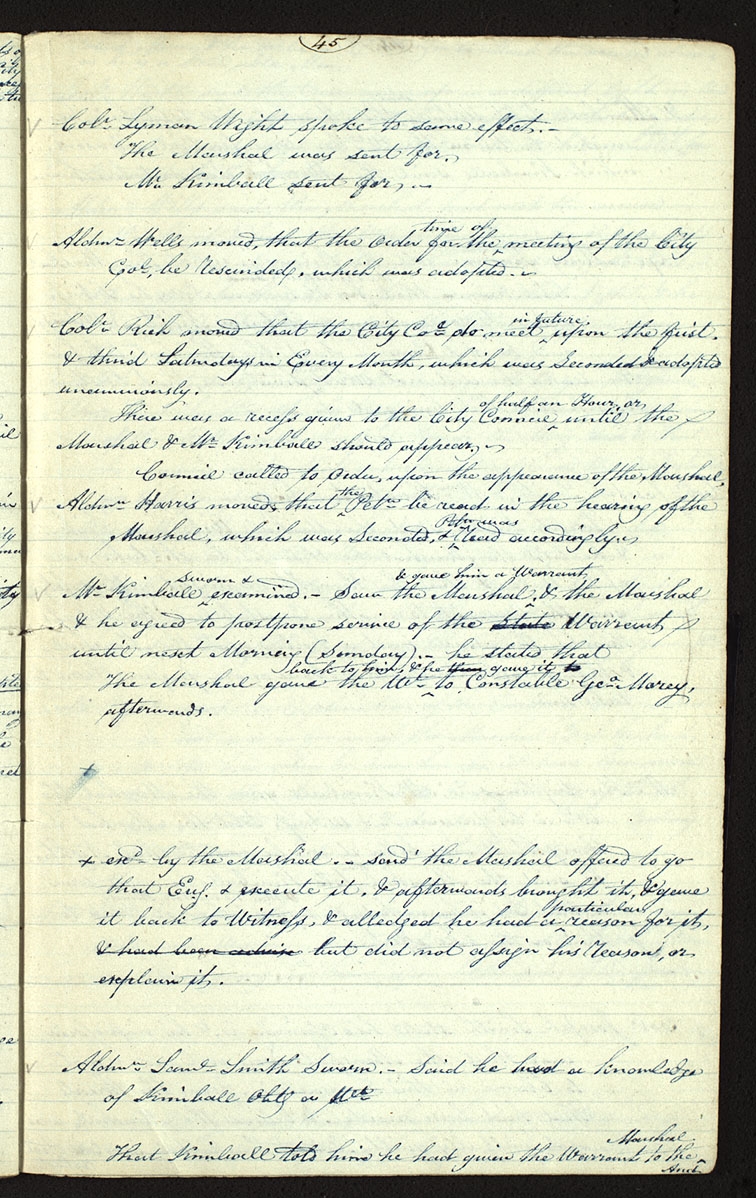 45
Colr. Lyman Wight, spoke to same effect.-
The Marshal was sent for.
Mr. Kimball sent for.-
Aldmn. Wells moved, that the Order for the time of meeting of the City
Col., be rescinded, which was adopted.-
Colr. Rich moved that the City Col. do meet in future upon the first
& third Saturdays in Every Month, which was Seconded & adopted
unanimously.
There was a recess given to the City Council of half an Hour, or until the
Marshal & Mr. Kimball should appear.
Council called to Order, upon the appearance of the Marshal,
Aldmn. Harris moved, that the Petn. be read in the hearing of the
Marshal, which was Seconded, & Petn. was read accordingly.
Mr. Kimball sworn & examined.- Saw the Marshal, & gave him a Warrant, & the Marshal
& he agreed to postpone service of the State Warrant,
until next Morning (Sunday).- he stated that
The Marshal gave the Wt. back to him, & he then gave it to to Constable Geo. Morey,
afterwards.
+
+ exd. by the Marshal.- said the Marshal offered to go
that Eveg. & execute it, & afterwards brought it, & gave
it back to Witness, & alledged he had a particular reason for it,
& had been but did not assign his reason, or
explain it.
Aldmn. Saml. Smith Sworn.- Said he had a knowledge
of Kimball Obtg a Wt.
That Kimball told him he had given the Warrant to the Marshal
And